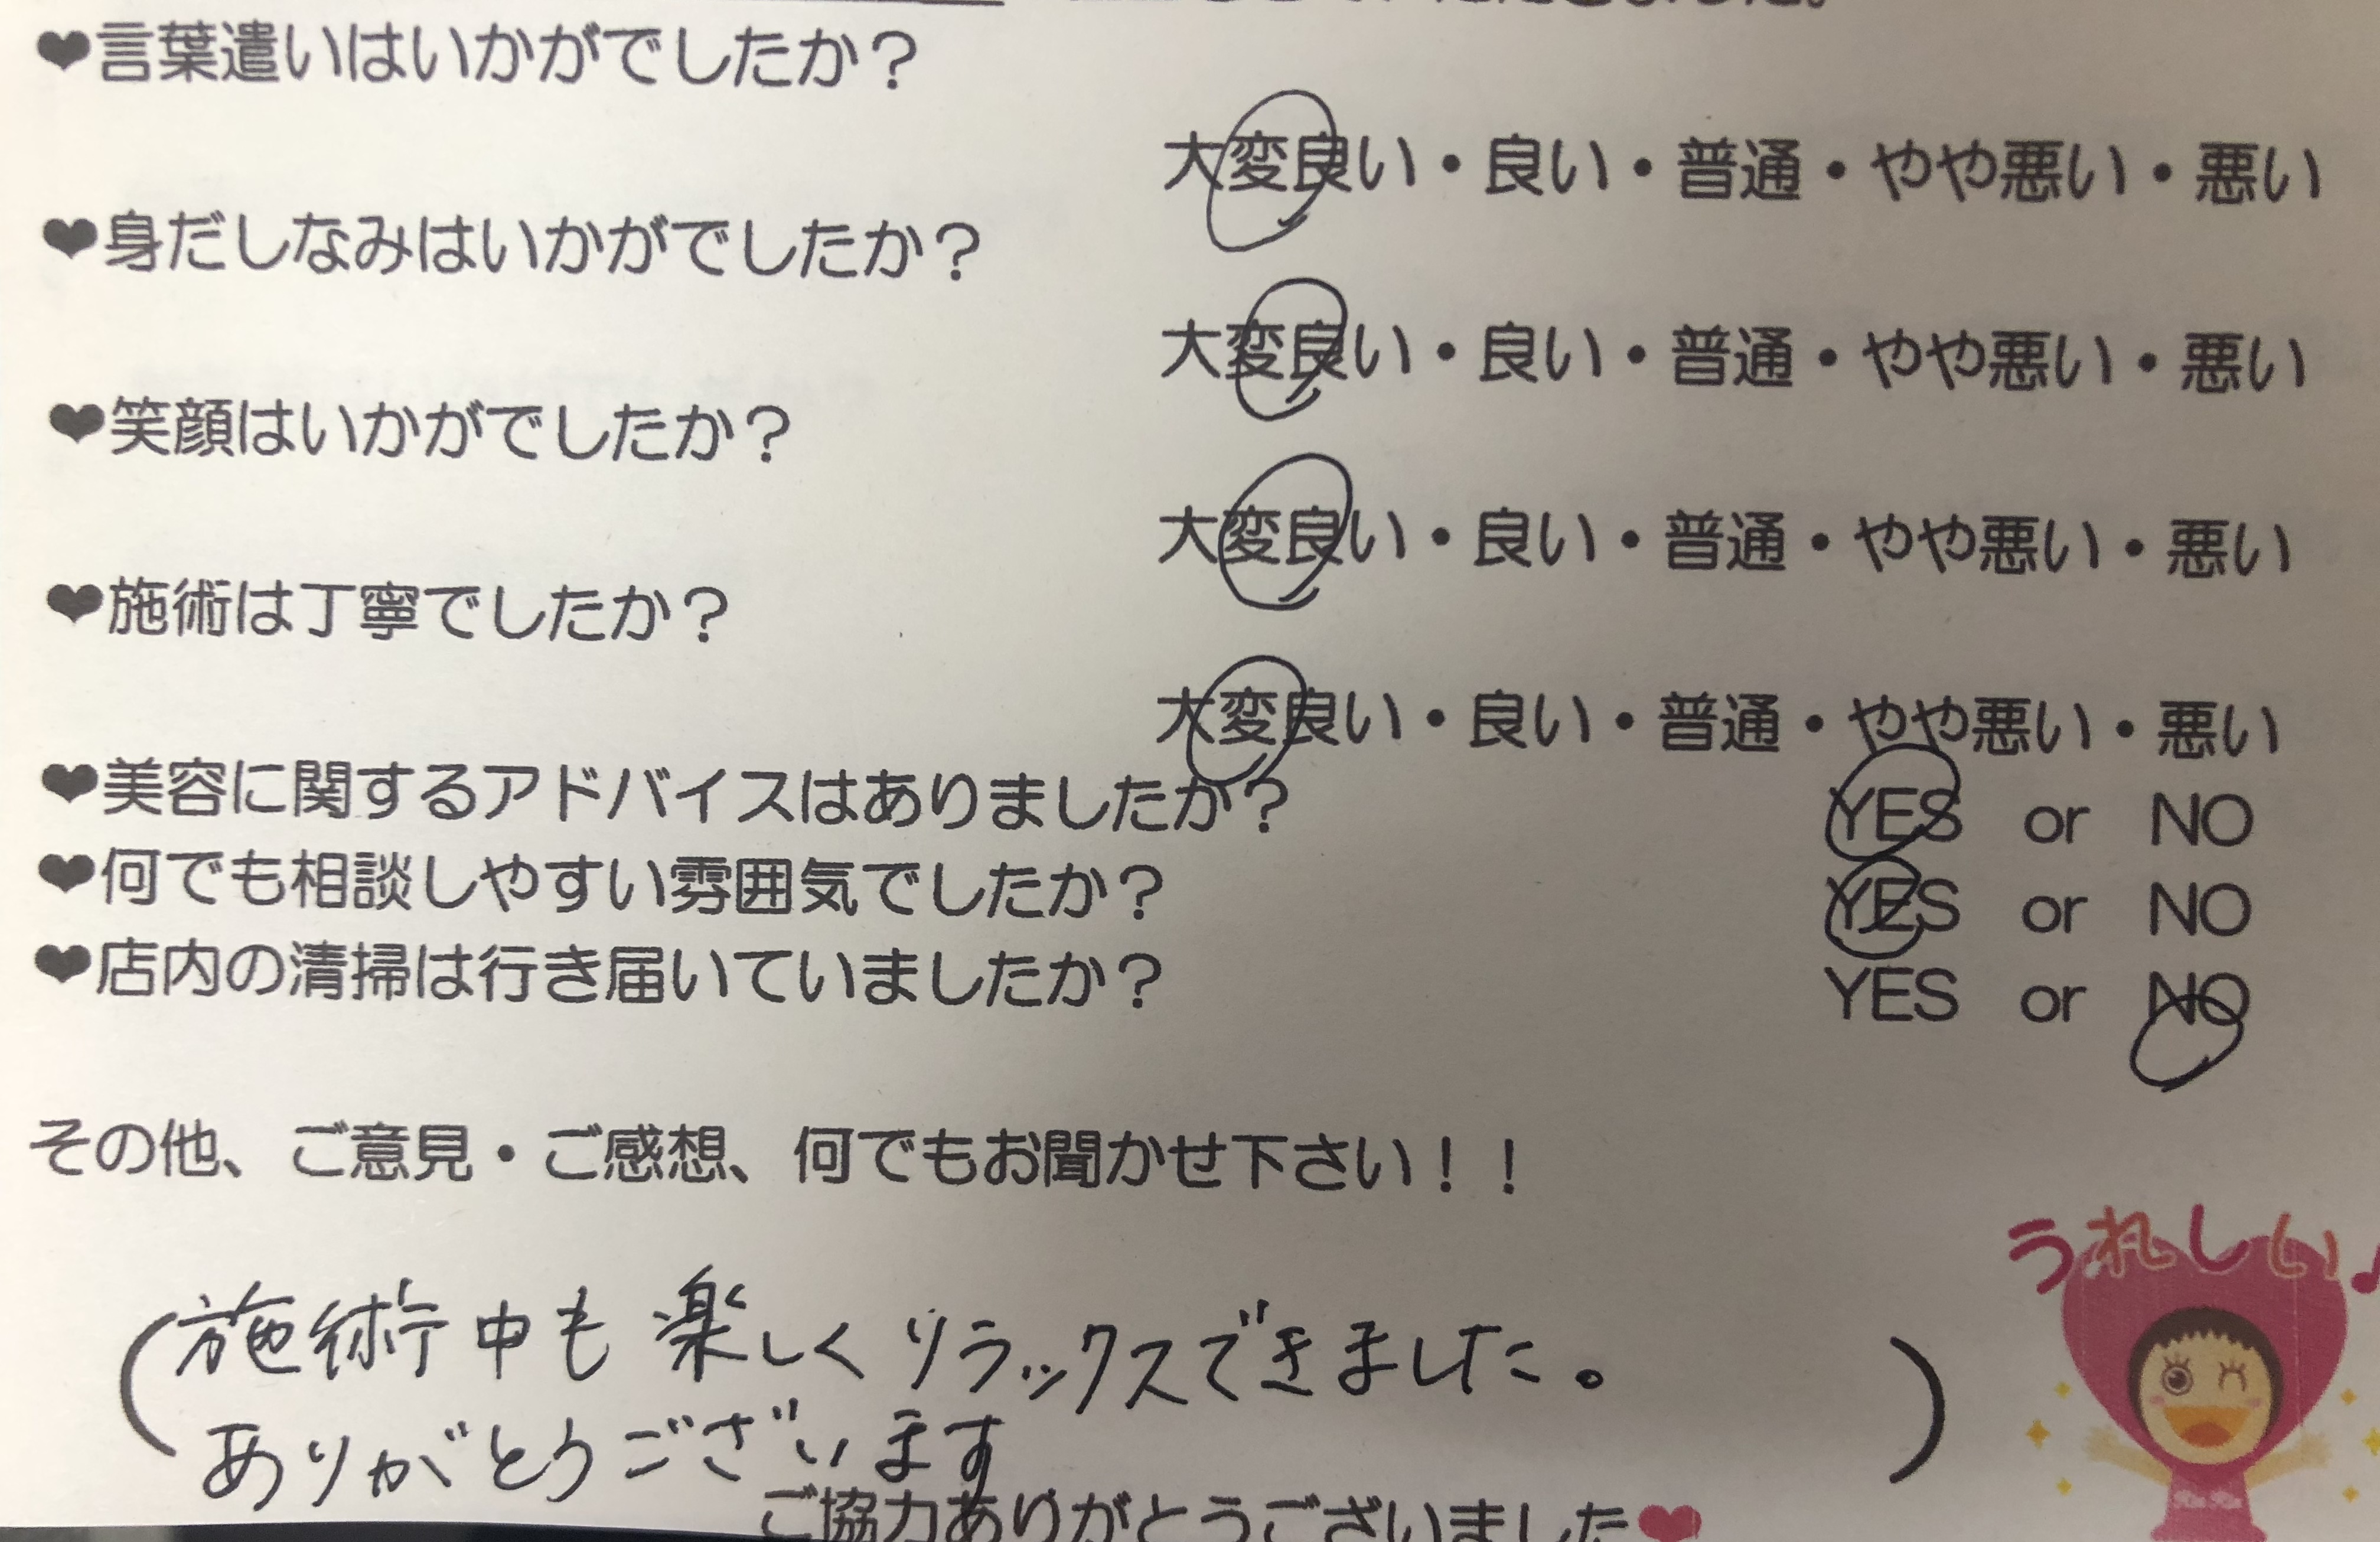 ❤言葉遣いはいかがでしたか？
大変良い・良い・普通・やや悪い・悪い
❤身だしなみはいかがでしたか？
大変良い・良い・普通・やや悪い・悪い
❤笑顔はいかがでしたか？
大変良い・良い・普通・やや悪い・悪い
❤施術は丁寧でしたか？
大変良い・良い・普通・やや悪い・悪い
❤美容に関するアドバイスはありましたか？ YES or NO
❤何でも相談しやすい雰囲気でしたか？ YES or NO
❤店内の清掃は行き届いていましたか？ YES or NO
その他、ご意見・ご感想、何でもお聞かせ下さい！！
うれしい♪
(施術中も楽しくリラックスできました。
ありがとうございます)
ご協力ありがとうございました❤